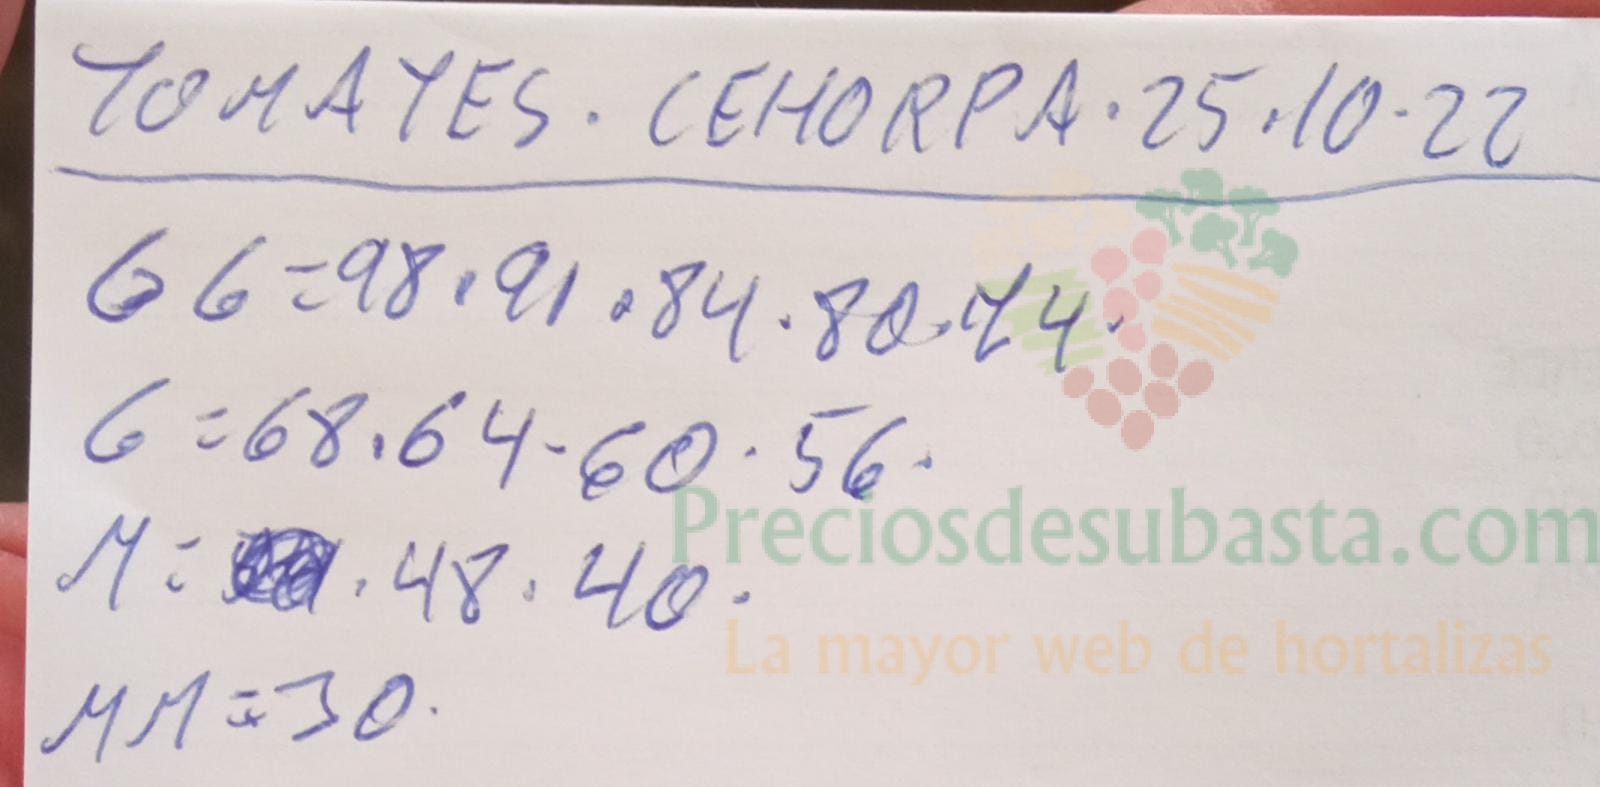 TOMATES. CEHORPA. 25.10.22
GG=98.91.84.80.74.
G=68.64-60.56.
M= .48.40.
MM=30.
Preciosdesubasta.com
La mayor web de hortalizas